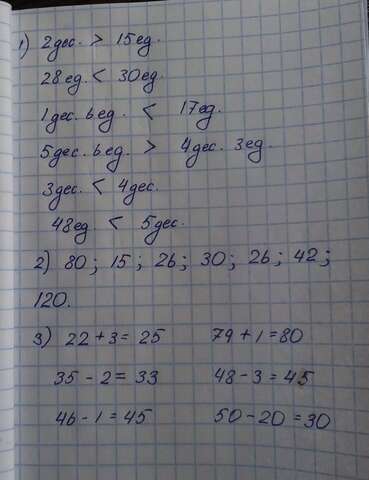 1) 2дес. > 15ед.
28ед. < 30ед.
1дес. 6ед. < 17ед.
5дес. 6ед. > 4дес. 3ед.
3дес. < 4дес.
48ед. < 5дес.
2) 80; 15; 26; 30; 26; 42;
120.
3) 22 + 3 = 25 79 + 1 = 80
35 - 2 = 33 48 - 3 = 45
46 - 1 = 45 50 - 20 = 30